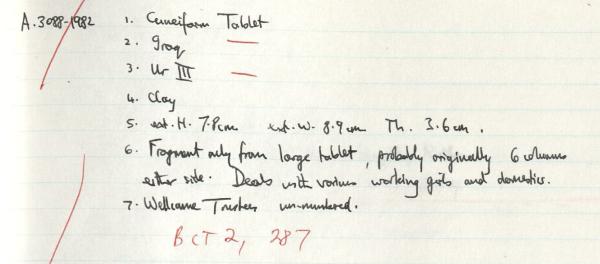 A.3088-1982 1. Cuneiform Tablet
2. Iraq
3. Ur III
4. Clay
5. ext. H. 7.8cm ext. W. 8.9cm Th. 3.6cm.
6. Fragment only from large tablet, probably originally 6 columns
either side. Deals with various working girls and domestics.
7. Wellcome Trustees un-numbered.
BCT 2, 287